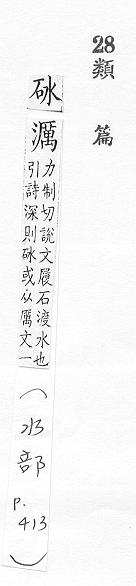 28類篇
砅
濿
力制切說文履石渡水也
引詩深則砅或从厲文一
（水部
p.
413）